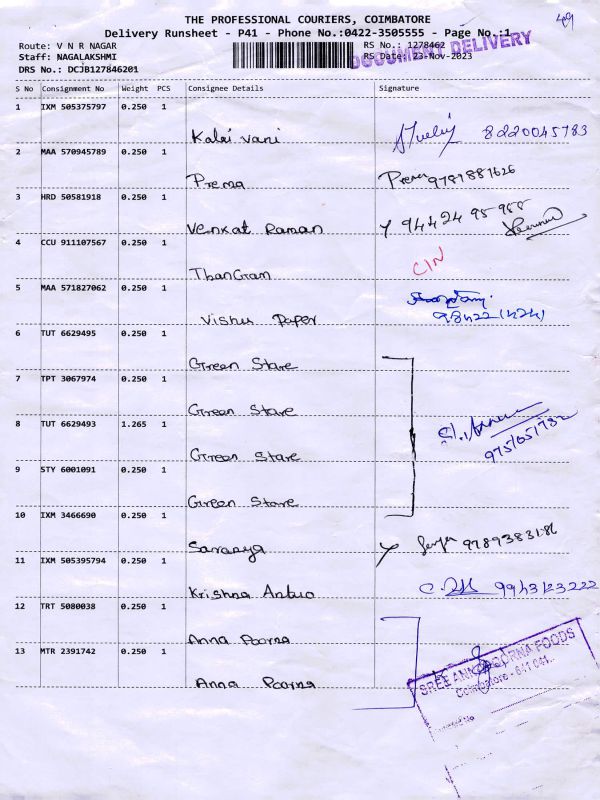 THE PROFESSIONAL COURIERS, COIMBATORE
49
Delivery Runsheet - P41 - Phone No.:0422-3505555 - Page No.:1
Route: V N R NAGAR
RS No.: 1278462
Staff: NAGALAKSHMI
RS Date: 23-Nov-2023
DOCUMENT DELIVERY
DRS No.: DCJB127846201
S No Consignment No Weight PCS Consignee Details Signature
1 IXM 505375797 0.250 1
Kalai vani 8220045783
2 MAA 570945789 0.250 1
Prema 9787887626
3 HRD 50581918 0.250 1
Venkat Raman 94424 95 988
4 CCU 911107567 0.250 1
ThanGram CIN
5 MAA 571827062 0.250 1
Vishu Paper 98422 (424)
6 TUT 6629495 0.250 1
Green Stare
7 TPT 3067974 0.250 1
Green Stare
8 TUT 6629493 1.265 1
Green Stare 9751051732
9 STY 6001091 0.250 1
Green Stare
10 IXM 3466690 0.250 1
Saranya 9789383186
11 IXM 505395794 0.250 1
Krishna Antuo 9943123222
12 TRT 5080038 0.250 1
Anna Poorna
13 MTR 2391742 0.250 1
Anna Poorna
SREE ANNAPOORNA FOODS
Coimbatore - 641 041.